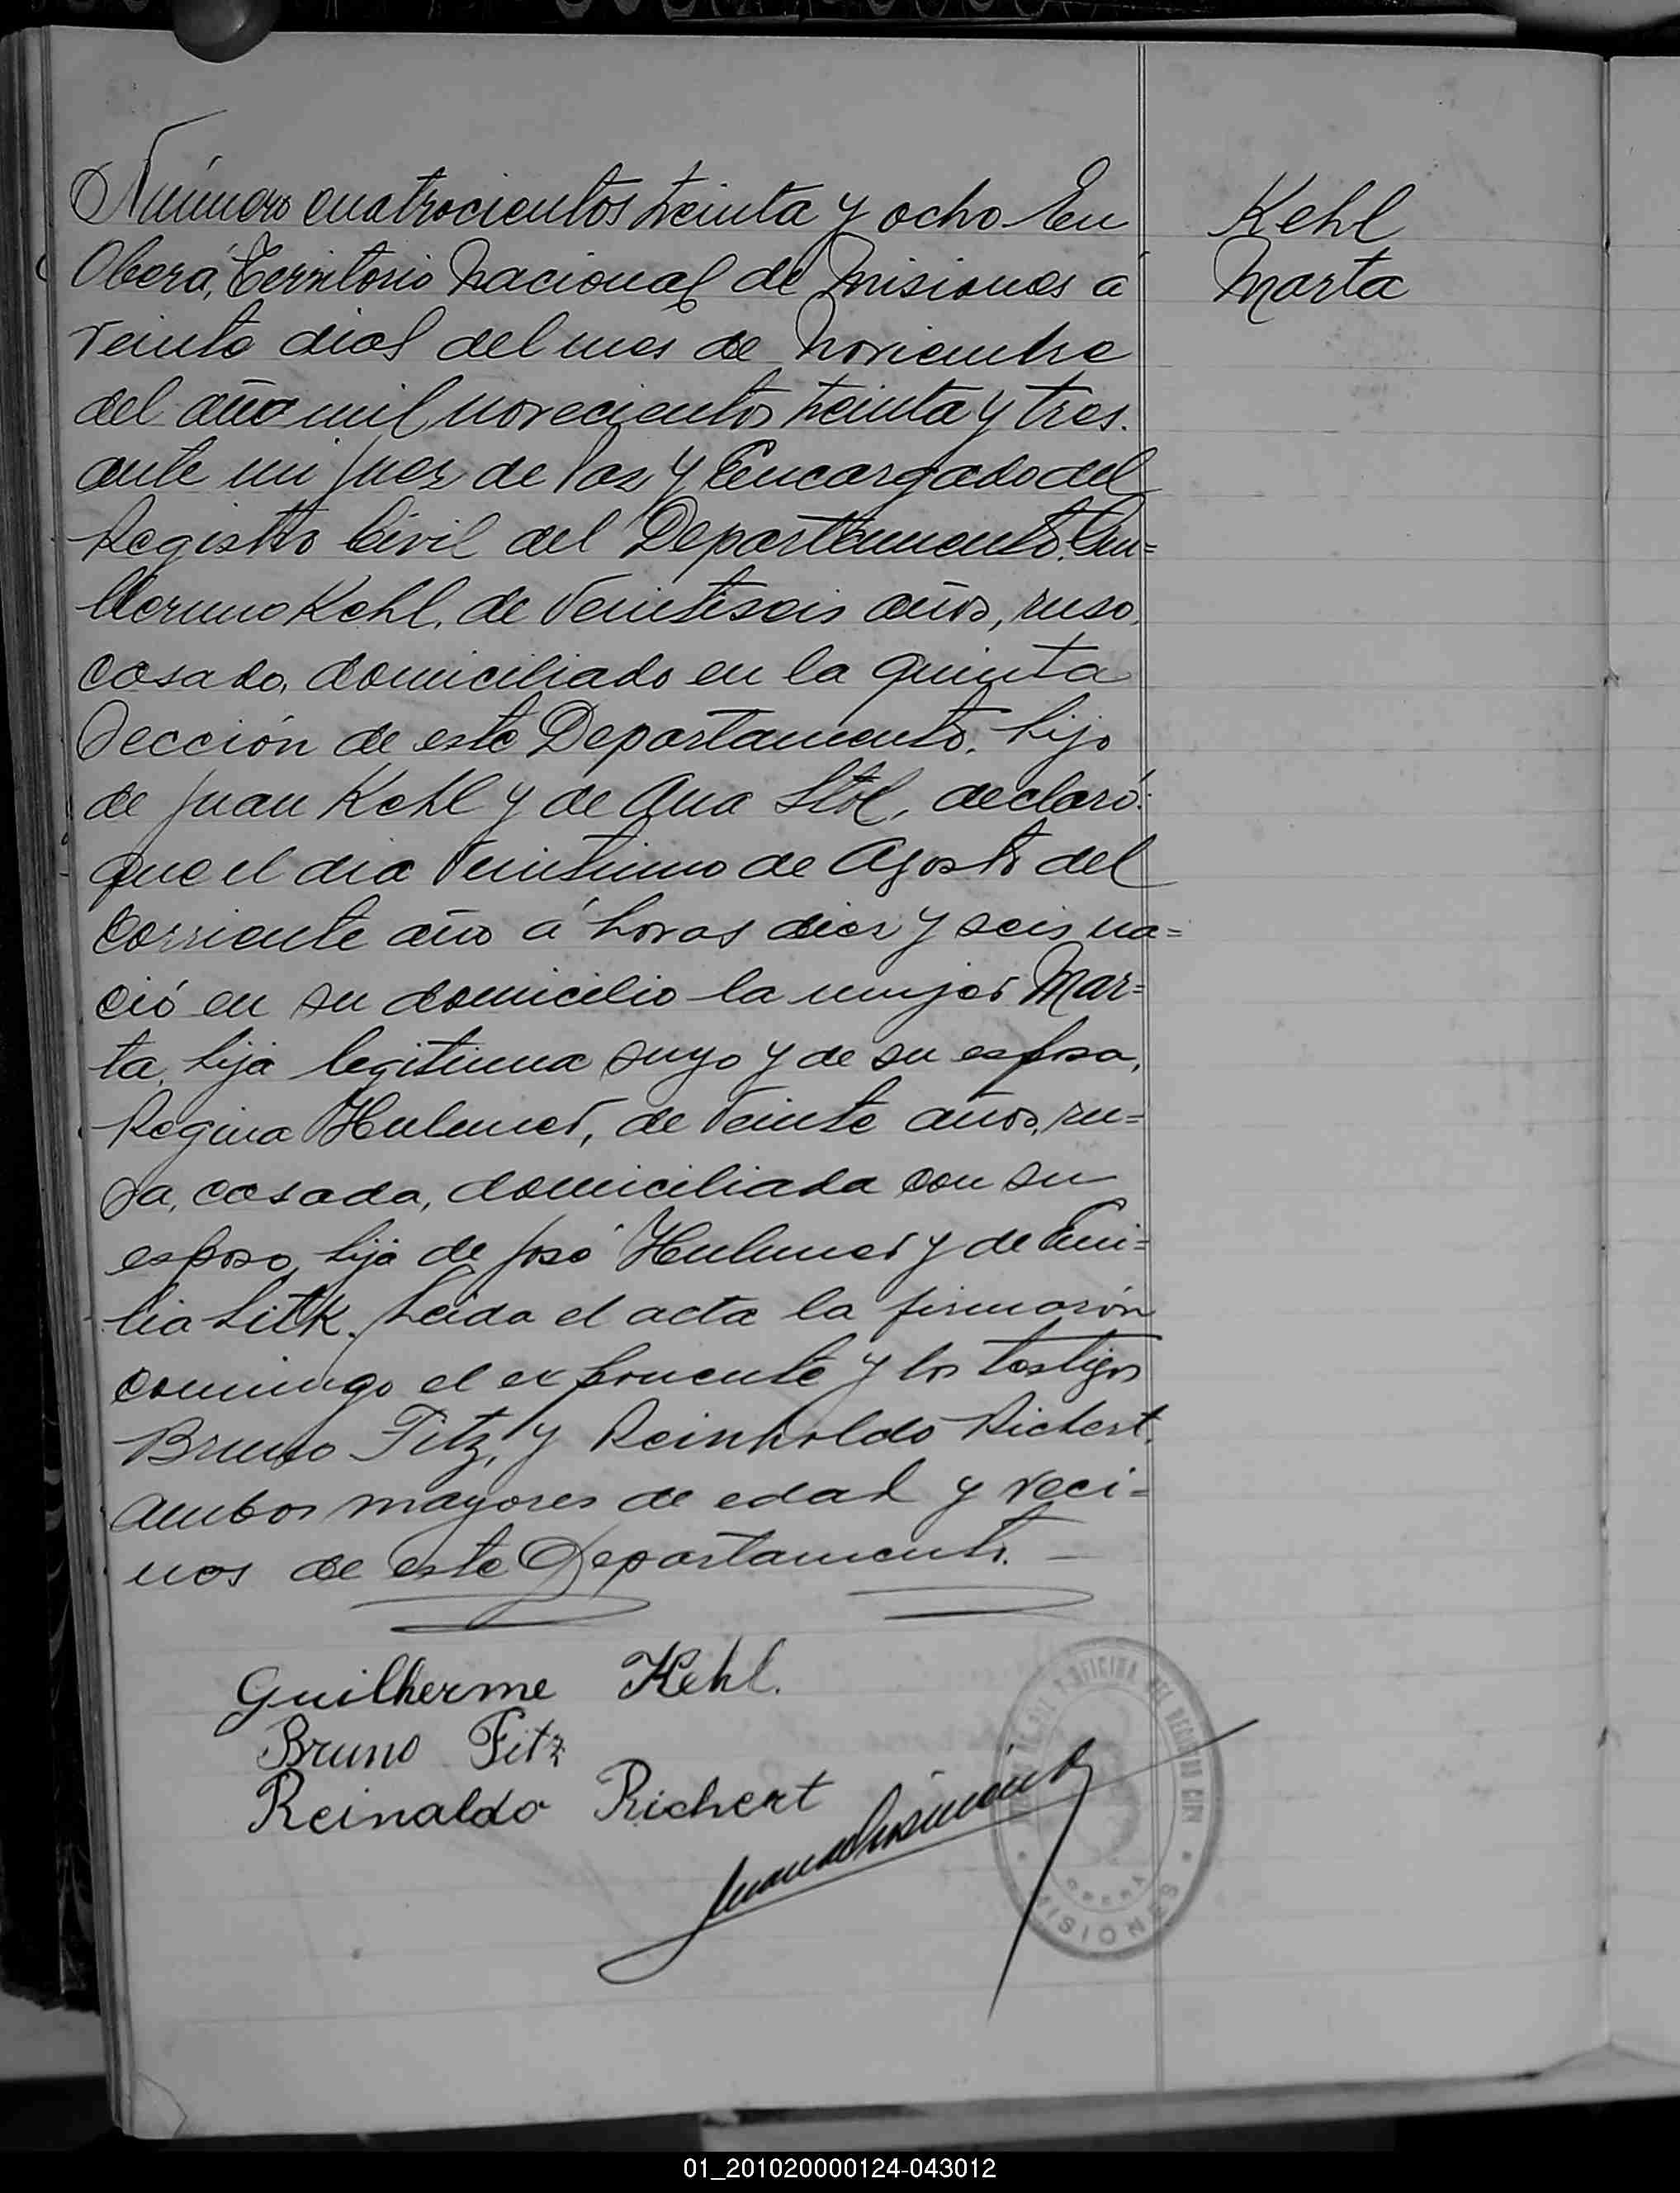 Número cuatrocientos treinta y ocho En
Oberá, Territorio Nacional de Misiones á
veinte dias del mes de Noviembre
del año mil novecientos treinta y tres.
ante mi Juez de Paz y Encargado del
Registro Civil del Departamento. Gui=
llermo Kehl, de veintiseis años, ruso,
casado, domiciliado en la quinta
Sección de este Departamento, hijo
de Juan Kehl y de Ana Stol, declaró:
que el dia veintiuno de Agosto del
corriente año á horas diez y seis na=
ció en su domicilio la mujer Mar=
ta, hija legitima suya y de su esposa,
Regina Hulmer, de veinte años, ru=
sa, casada, domiciliada con su
esposo, hija de José Hulmer y de Emi=
lia Litk. Leida el acta la firmarón
conmigo el exponente y los testigos
Bruno Fitz, y Reinholdo Richert,
ambos mayores de edad y veci=
nos de este Departamento. —
Guilherme Kehl.
Bruno Fitz
Reinaldo Richert
Kehl
Marta
OFICINA DEL REGISTRO CIVIL
OBERÁ
MISIONES
01_201020000124-043012